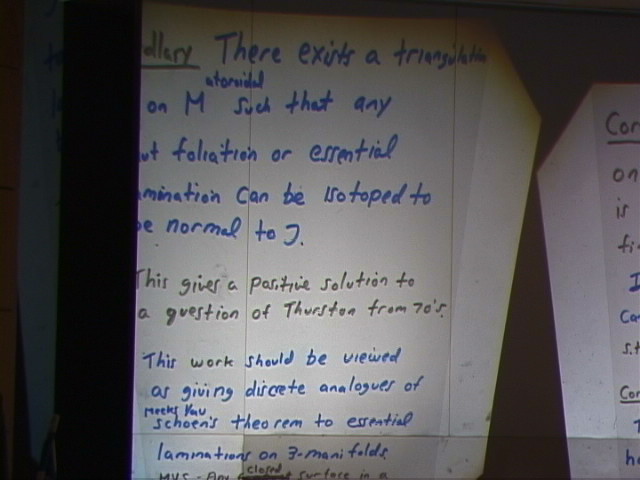 ollary There exists a triangulation
atoroidal
on M such that any
ut foliation or essential
amination can be isotoped to
be normal to J.
This gives a positive solution to
a question of Thurston from 70's.
This work should be viewed
as giving discrete analogues of
Meeks Yau
Schoen's theorem to essential
laminations on 3-manifolds
closed
MYS - Any surface in a
Cor
on
is
fi
I
Ca
s.t
Cor
T
ha